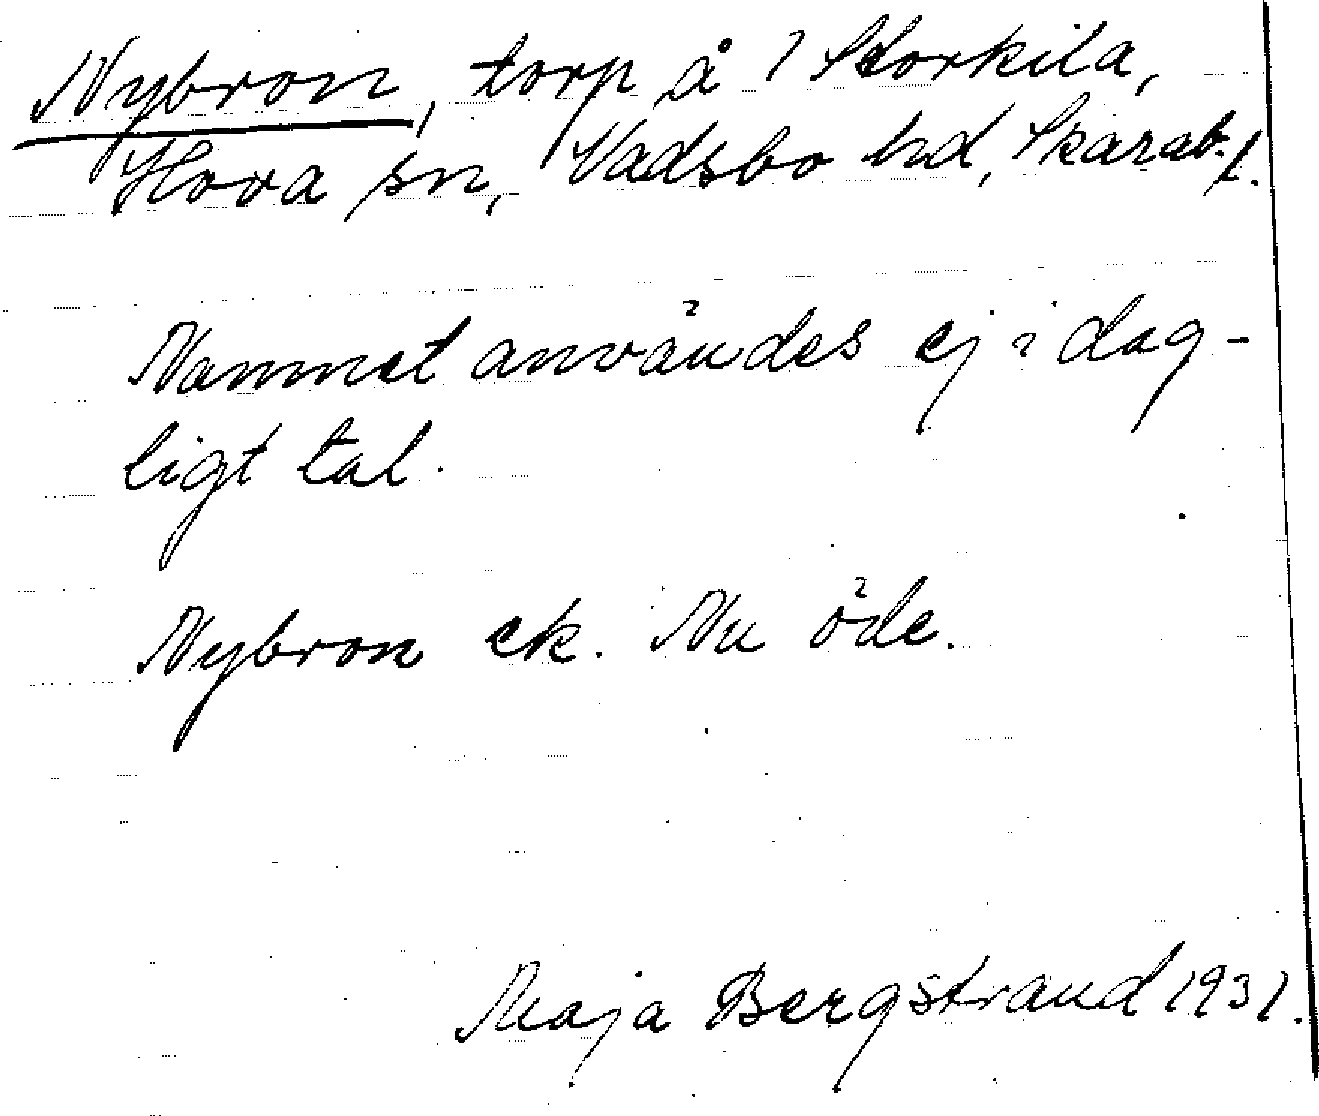 Nybron, torp å 1 Storkila,
Hova sn, Vadsbo hd, Skarab. l.
Namnet användes ej i dag-
ligt tal.
Nybron ek. Nu öde.
Maja Bergstrand 1931.